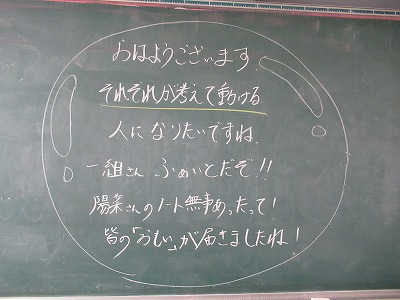 おはようございます.
それぞれが考えて動ける
人になりたいですね.
一組さん ふぁいとだぞ!!
陽菜さんのノート無事あったって!
皆の「おもい」が届きましたね!